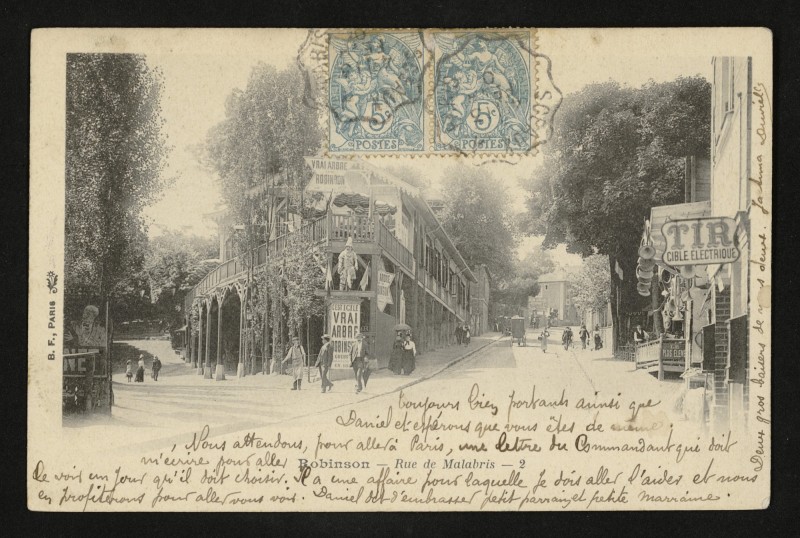 POSTES
POSTES
5
5c
VRAI ARBRE
ROBINSON
VRAI
ARBRE
ROBINSON
TIR
CIBLE ELECTRIQUE
B. F., PARIS
toujours bien portants ainsi que
Daniel et espérons que vous êtes de meme;
Nous attendons, pour aller à Paris, une lettre du Commandant qui doit
m'écrire pour aller
Robinson — Rue de Malabris — 2
le voir un jour qu'il doit choisir. Il a une affaire pour laquelle je dois aller l'aider et nous
en profiterons pour aller vous voir. Daniel dit d'embrasser petit parrain et petite marraine.
Deux gros baisers de nous deux.